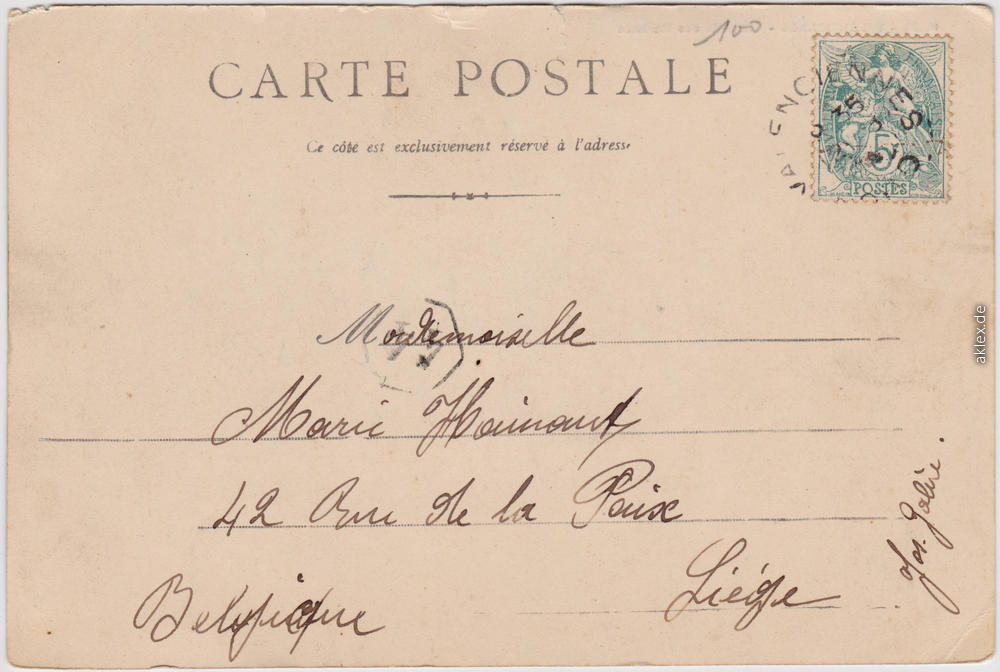 100
CARTE POSTALE
Ce côté est exclusivement réservé à l'adresse
VALENCIENNES
35
5
POSTES
Mademoiselle
Marie Hainaut
42 Rue de la Paix
Liége
Belgique
aklex.de